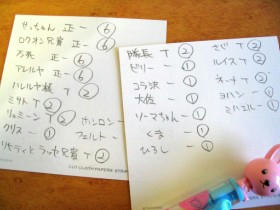 せっちゃん 正一 ⑥
ロクオン兄貴 正一 ⑥
万死 正一 ⑥
アレルヤ 正一 ⑥
ハレルヤ様 T ②
ミサト T ②
リューミン T ②
クリス 一 ①
ホンロン 一 ①
フェルト 一
リヒティとラッセ兄貴 T ②
隊長 T ②
ビリー 一 ①
コーラ沢 一 ①
大佐 一 ①
ソーマちゃん 一 ①
くま 一 ①
ひろし 一 ①
さじ T ②
ルイス T ②
ネーナ T ②
ヨハン 一 ①
ミハエル 一 ①